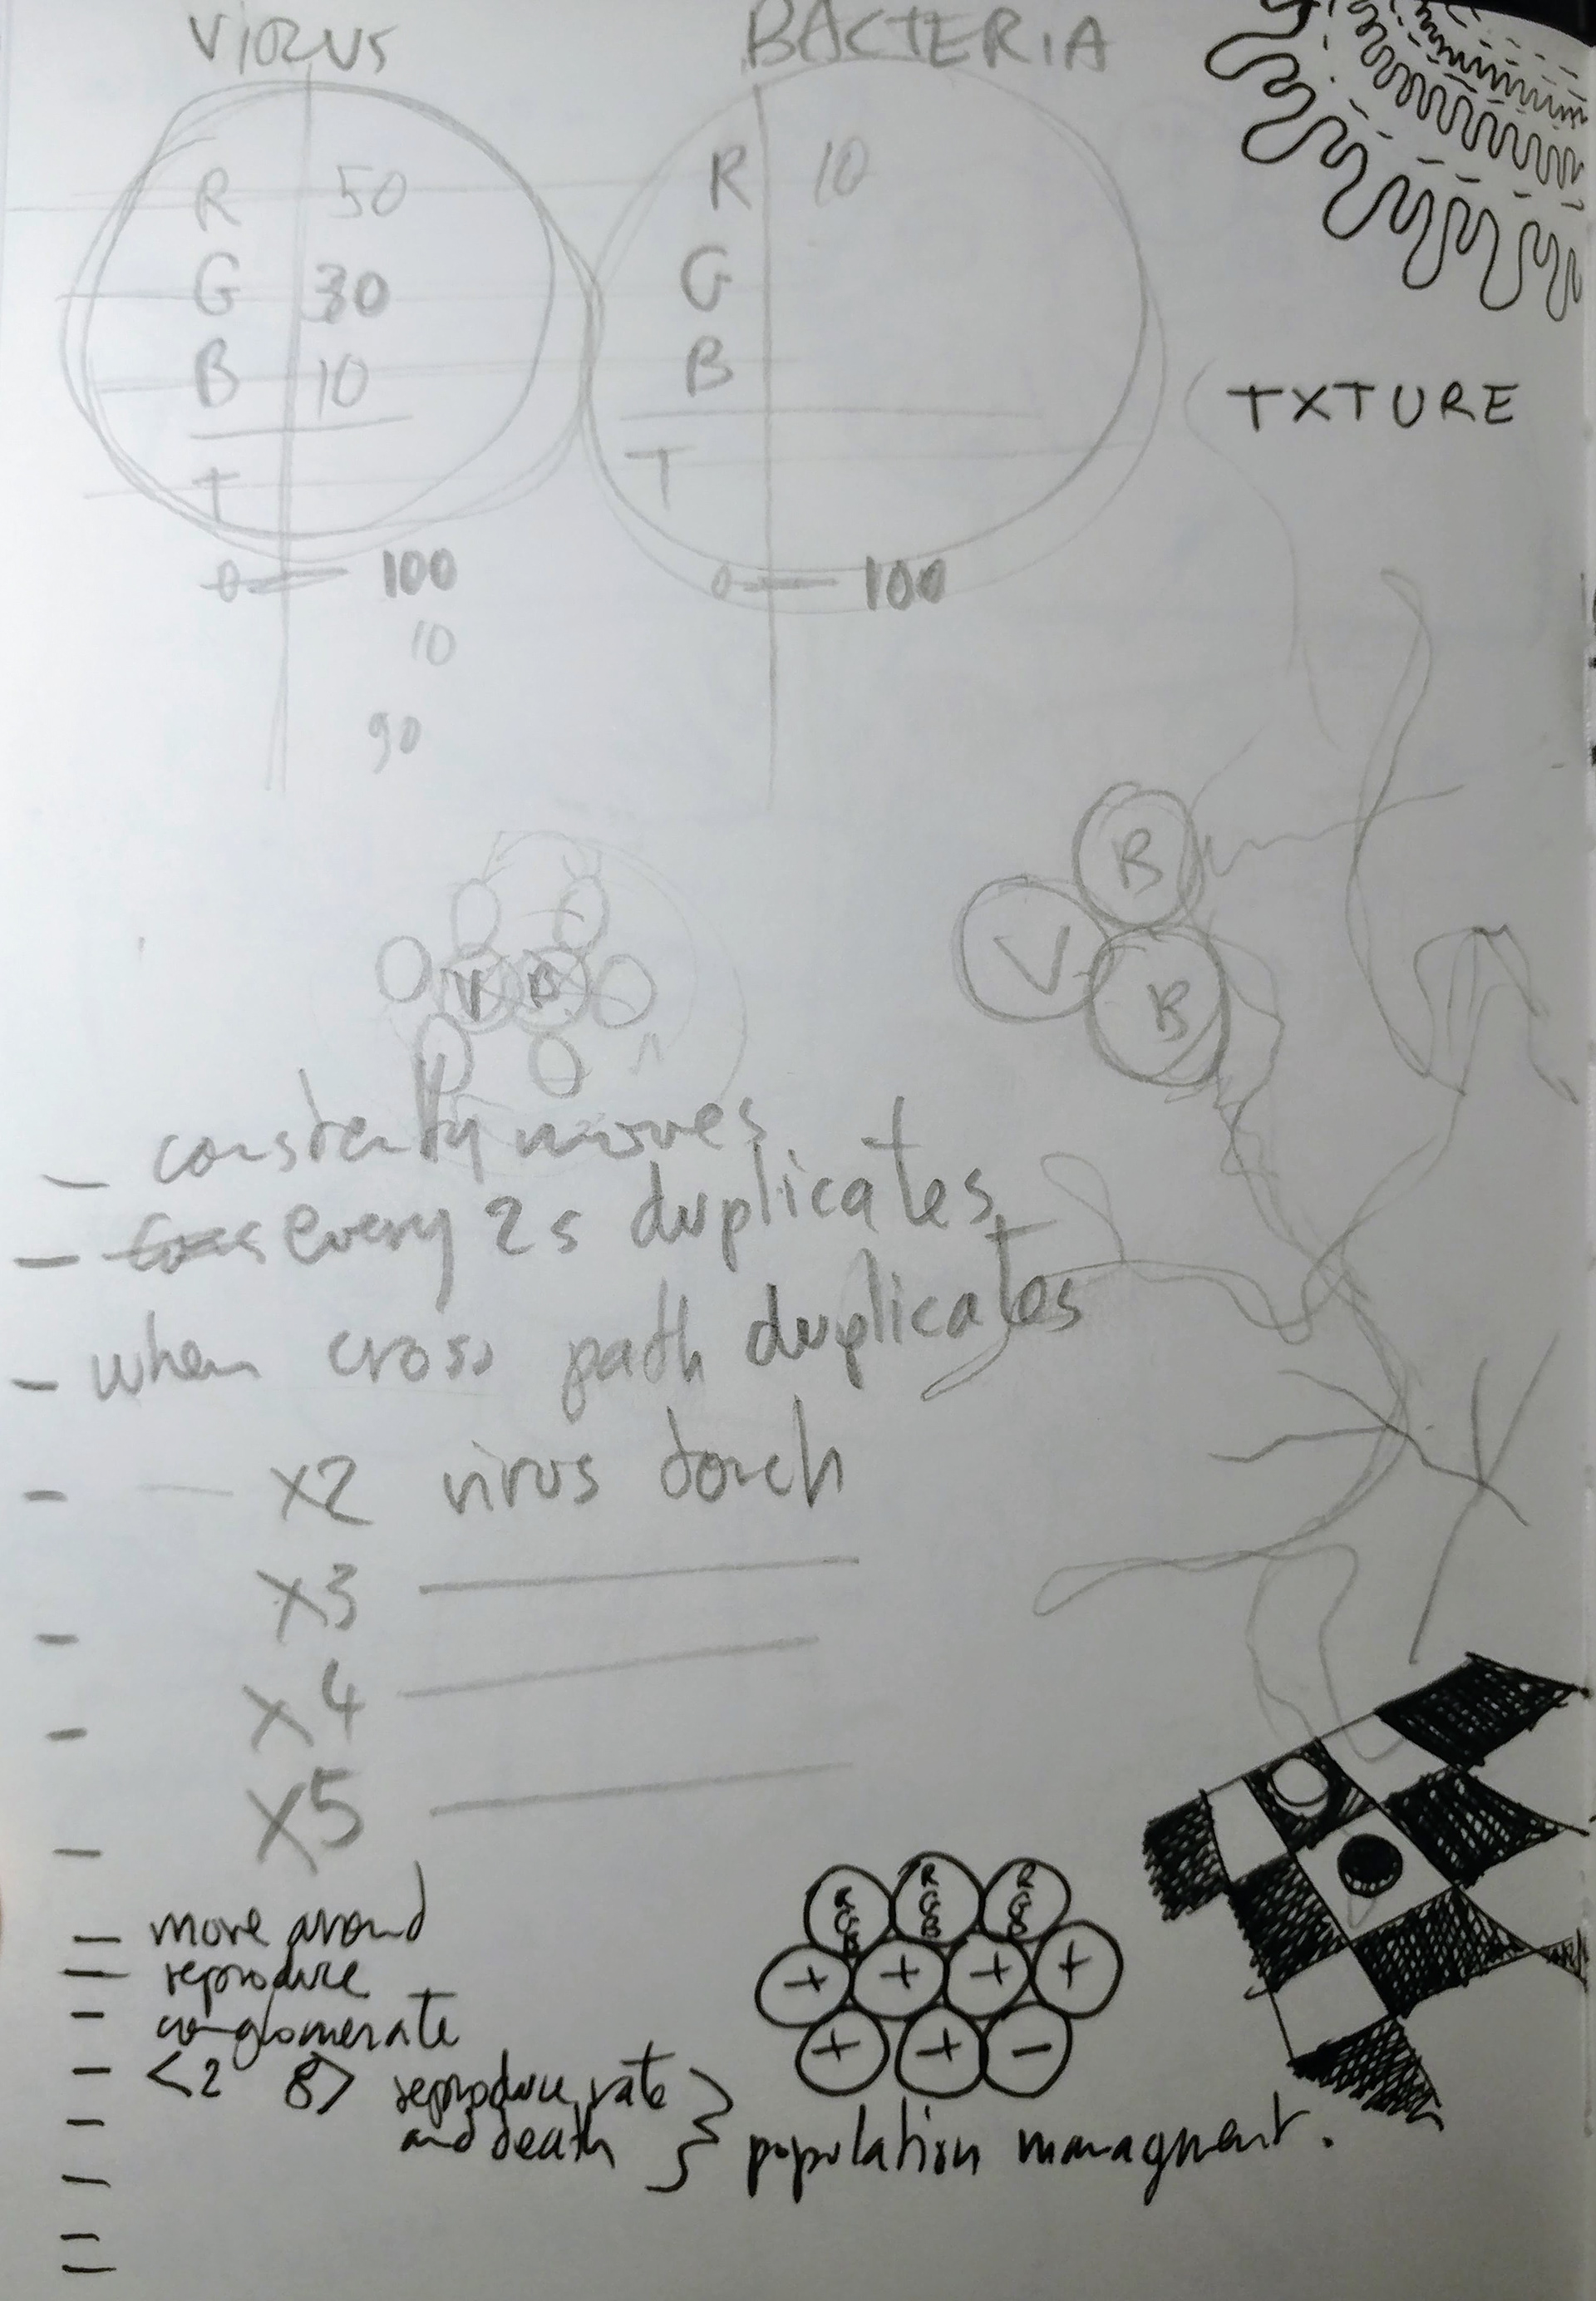 VIRUS
BACTERIA
R 50
G 30
B 10
T
0 — 100
10
90
R 10
G
B
T
0 — 100
TXTURE
V B
B
V
B
- constently moves
- every 2s duplicates
- when cross path duplicates
- x2 virus touch
- x3
- x4
- x5
- move around
- reproduce
- conglomerate
- <2 8> reproduce rate
and death } population managment.
R G B
R G B
R G B
+ + + +
+ + -